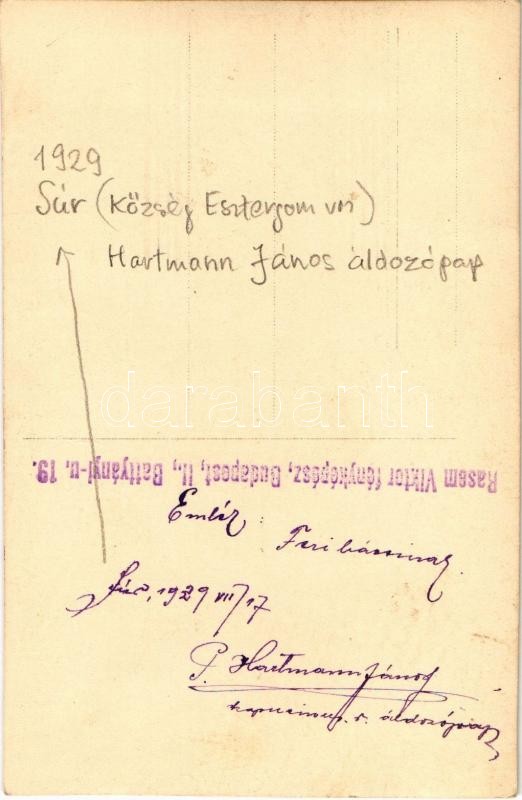 1929
Súr (Község Esztergom vm)
Hartmann János áldozópap
darabanth
Rasem Viktor fényképész, Budapest, II., Battyányi-u. 19.
Emlék
Feri bácsinak.
Súr, 1929 VII/17
P. Hartmann János
kapucinus r. áldozópap